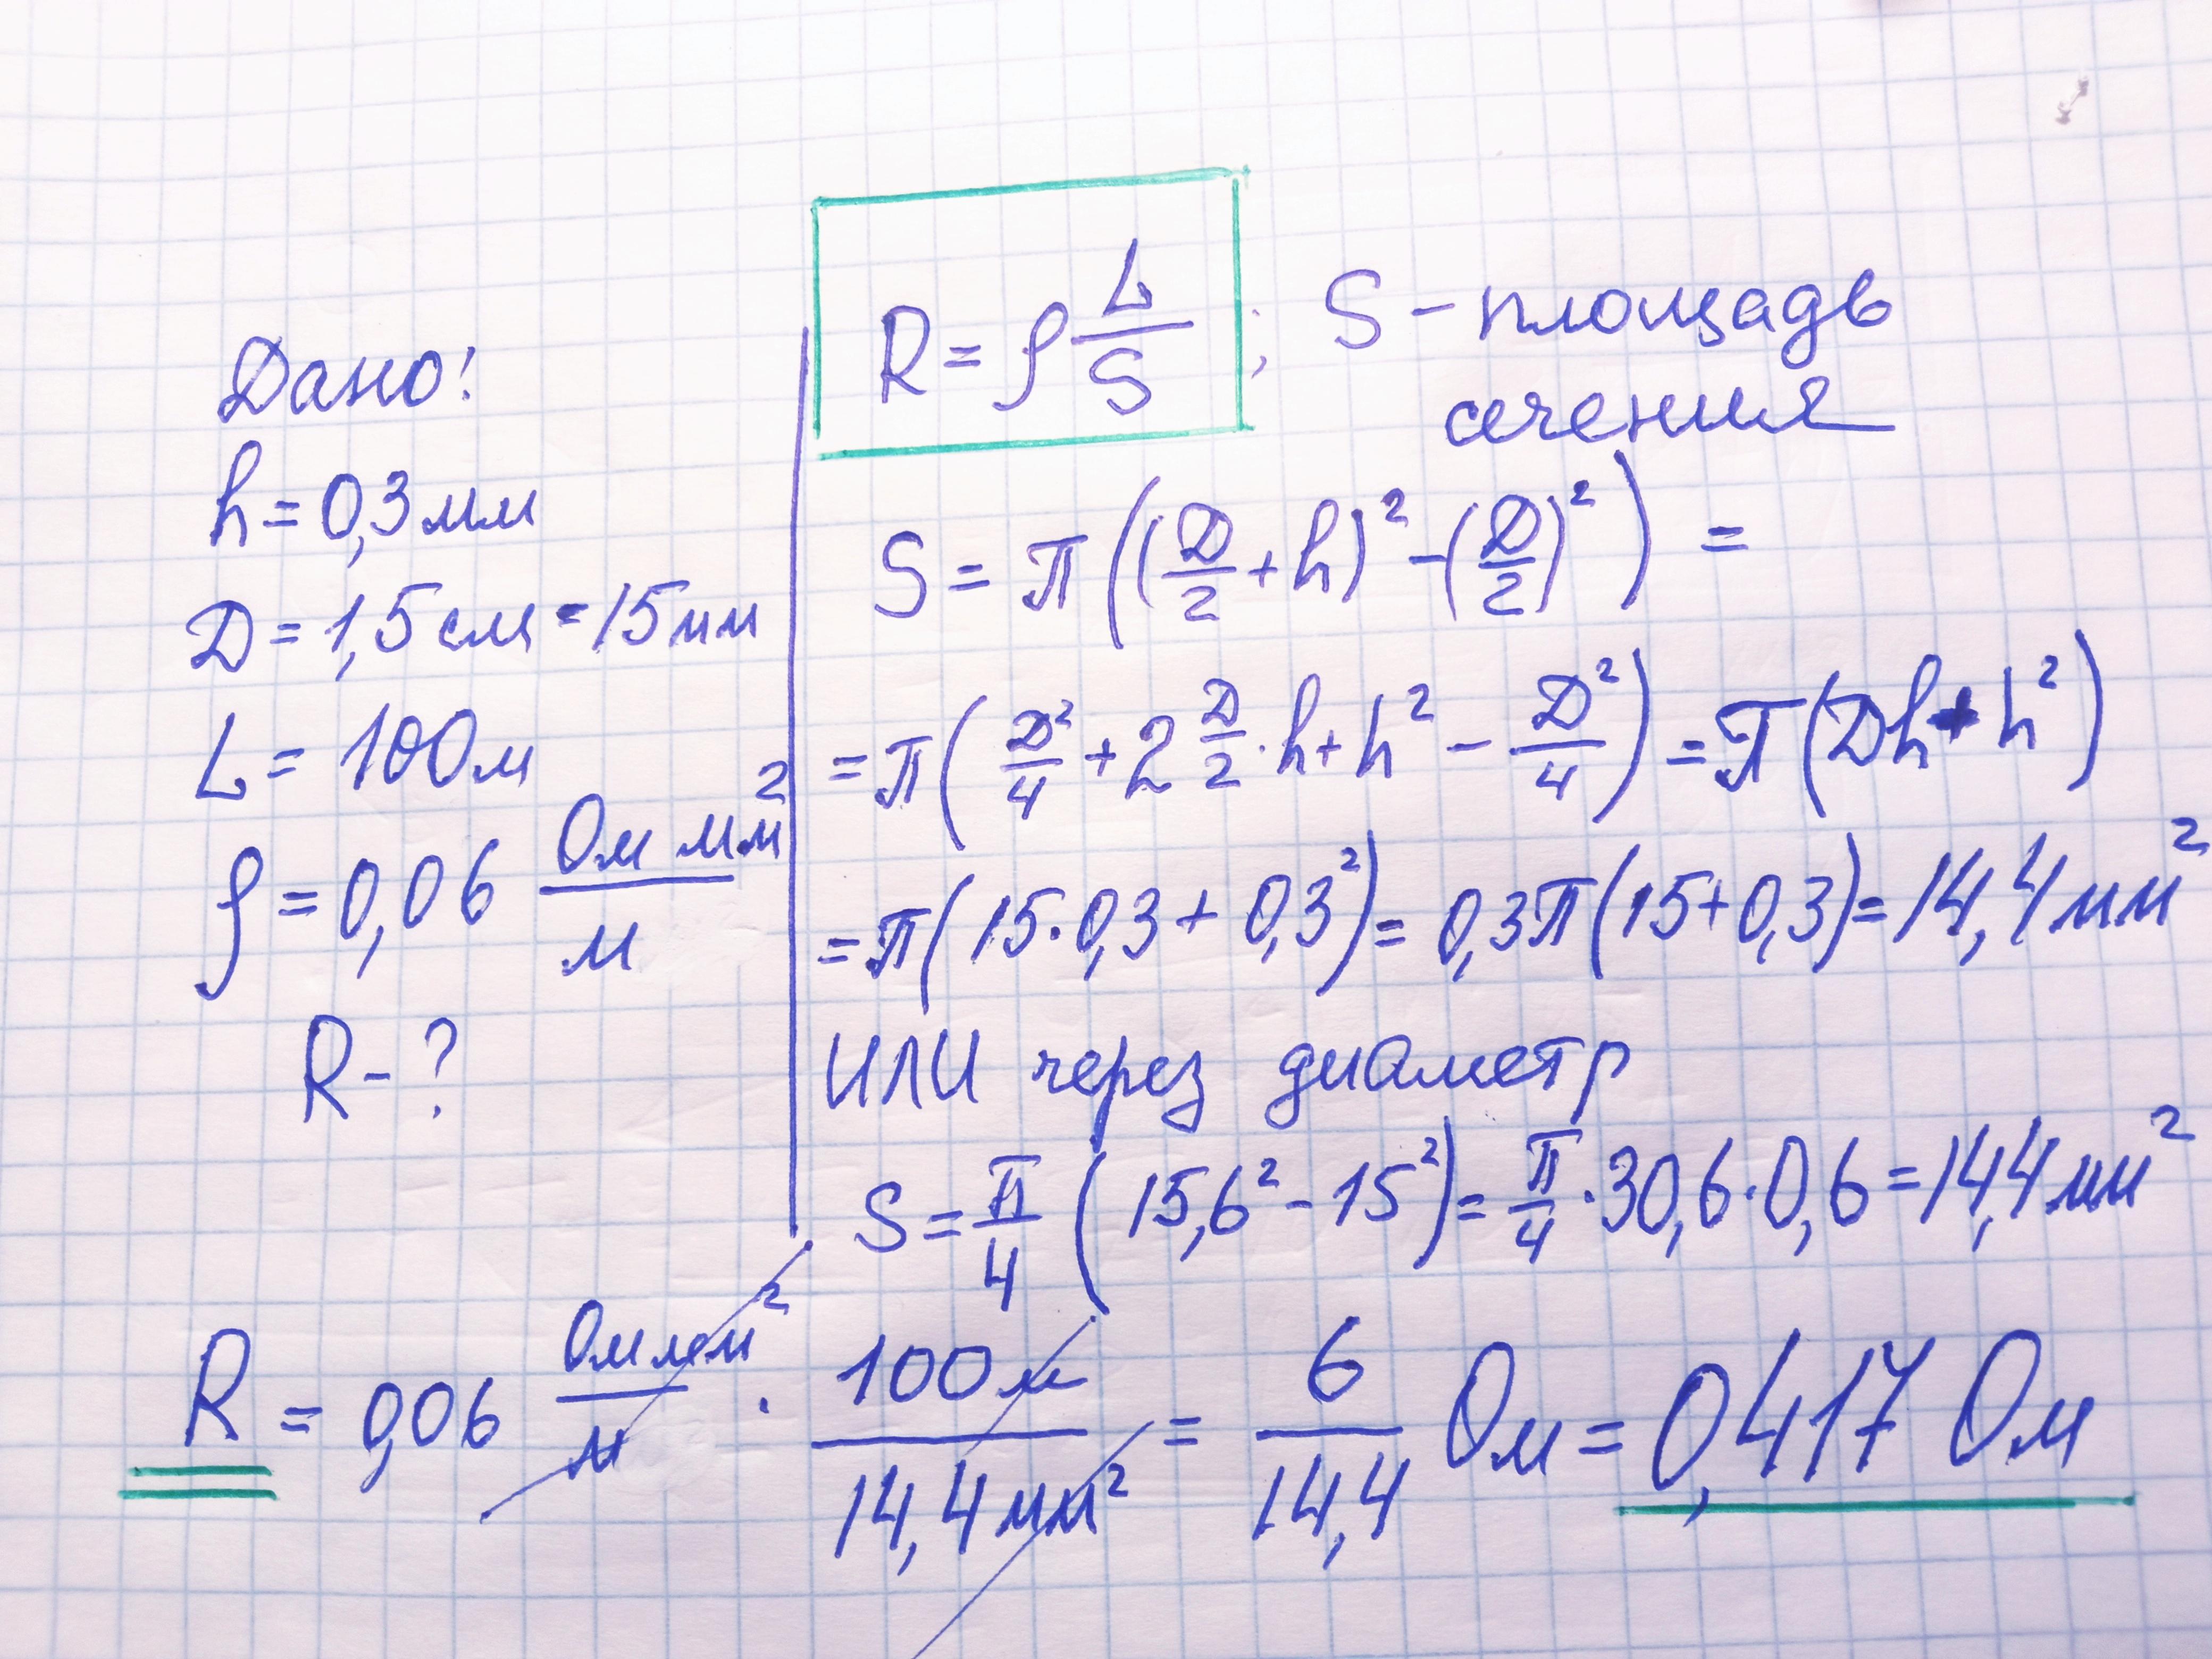 Дано:
h = 0,3 мм
D = 1,5 см = 15 мм
L = 100 м
ρ = 0,06 Ом мм² / м
R - ?
R = ρ L/S ; S - площадь
сечения
S = π((D/2 + h)² - (D/2)²) =
= π(D²/4 + 2 D/2 · h + h² - D²/4) = π(Dh + h²)
= π(15 · 0,3 + 0,3²) = 0,3π(15 + 0,3) = 14,4 мм²
или через диаметр
S = π/4 (15,6² - 15²) = π/4 · 30,6 · 0,6 = 14,4 мм²
R = 0,06 Ом мм²/м · 100 м / 14,4 мм² = 6/14,4 Ом = 0,417 Ом